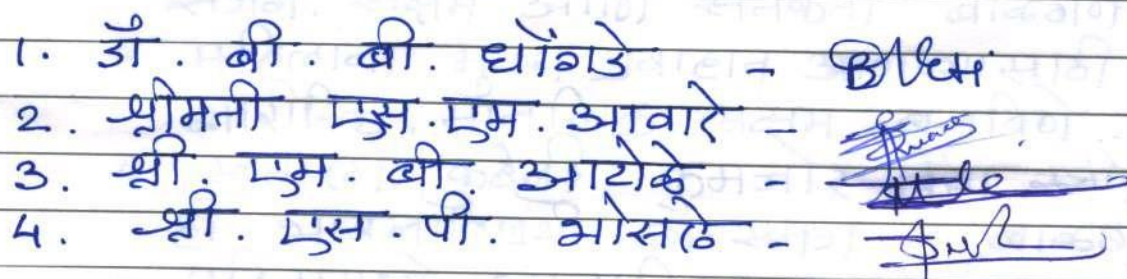 1. डॉ. बी. बी. घोंगडे -
2. श्रीमती एस.एम. आवारे -
3. श्री. एम. बी. आटोळे -
4. श्री. एस. पी. भोसले -